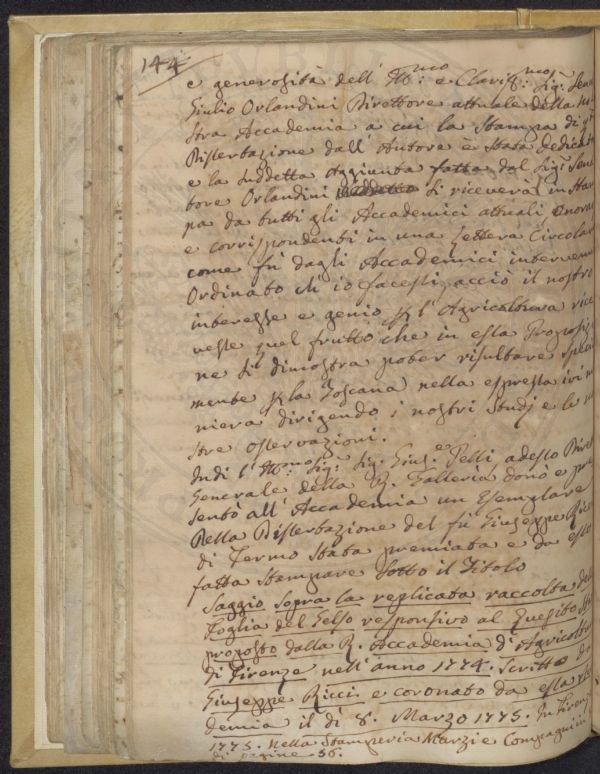 144
e generosità dell' Ill:mo e Clariss:mo Sig: Sena
Giulio Orlandini Direttore attuale della No
stra Accademia a cui la Stampa di qta
Dissertazione dall' Autore è Stata dedicata
e la suddetta Aggiunta fatta dal Sig: Sena
tore Orlandini si riceverà in Stam
pa da tutti gli Accademici attuali Onorar
e corrispondenti in una Lettera Circolare
come fù dagli Accademici intervenuti
Ordinato ch' io facessi, acciò il nostro
interesse e genio p l' Agricoltura rice
vesse quel frutto che in essa Proposizio
ne si dimostra poter risultare Special
mente p la Toscana nella espressa ivi ma
niera dirigendo i nostri Studj e le no
stre osservazioni.
Indi l' Ill:mo Sig: Sig: Gius:e Pelli adesso Dirett
Generale della R. Galleria donò e pre
sentò all' Accademia un Esemplare
Della Dissertazione del fù Giuseppe Ricci
di Fermo Stata premiata e da esso
fatta Stampare Sotto il Titolo
Saggio sopra la replicata raccolta della
Foglia del Gelso responsivo al Quesito
proposto dalla R. Accademia d' Agricoltura
di Firenze nell' anno 1774. Scritto da
Giuseppe Ricci e coronato da essa
demia il dì 8. Marzo 1775. In Firenze
1775. nella Stamperia Marzi e Compagni in
di pagine 56.